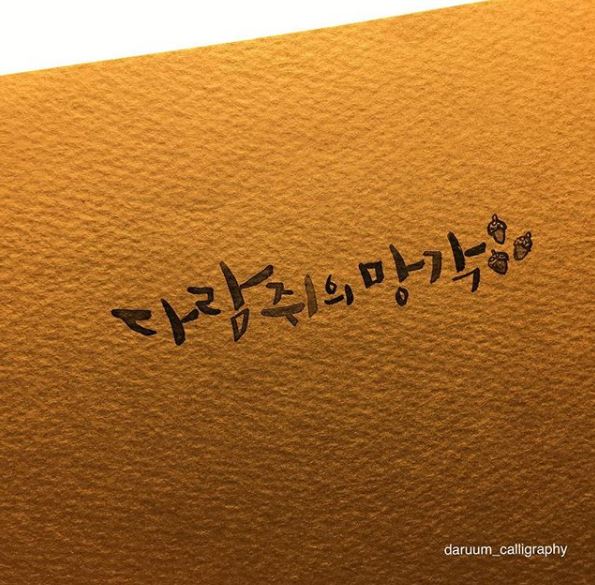 다람쥐의 망각
daruum_calligraphy